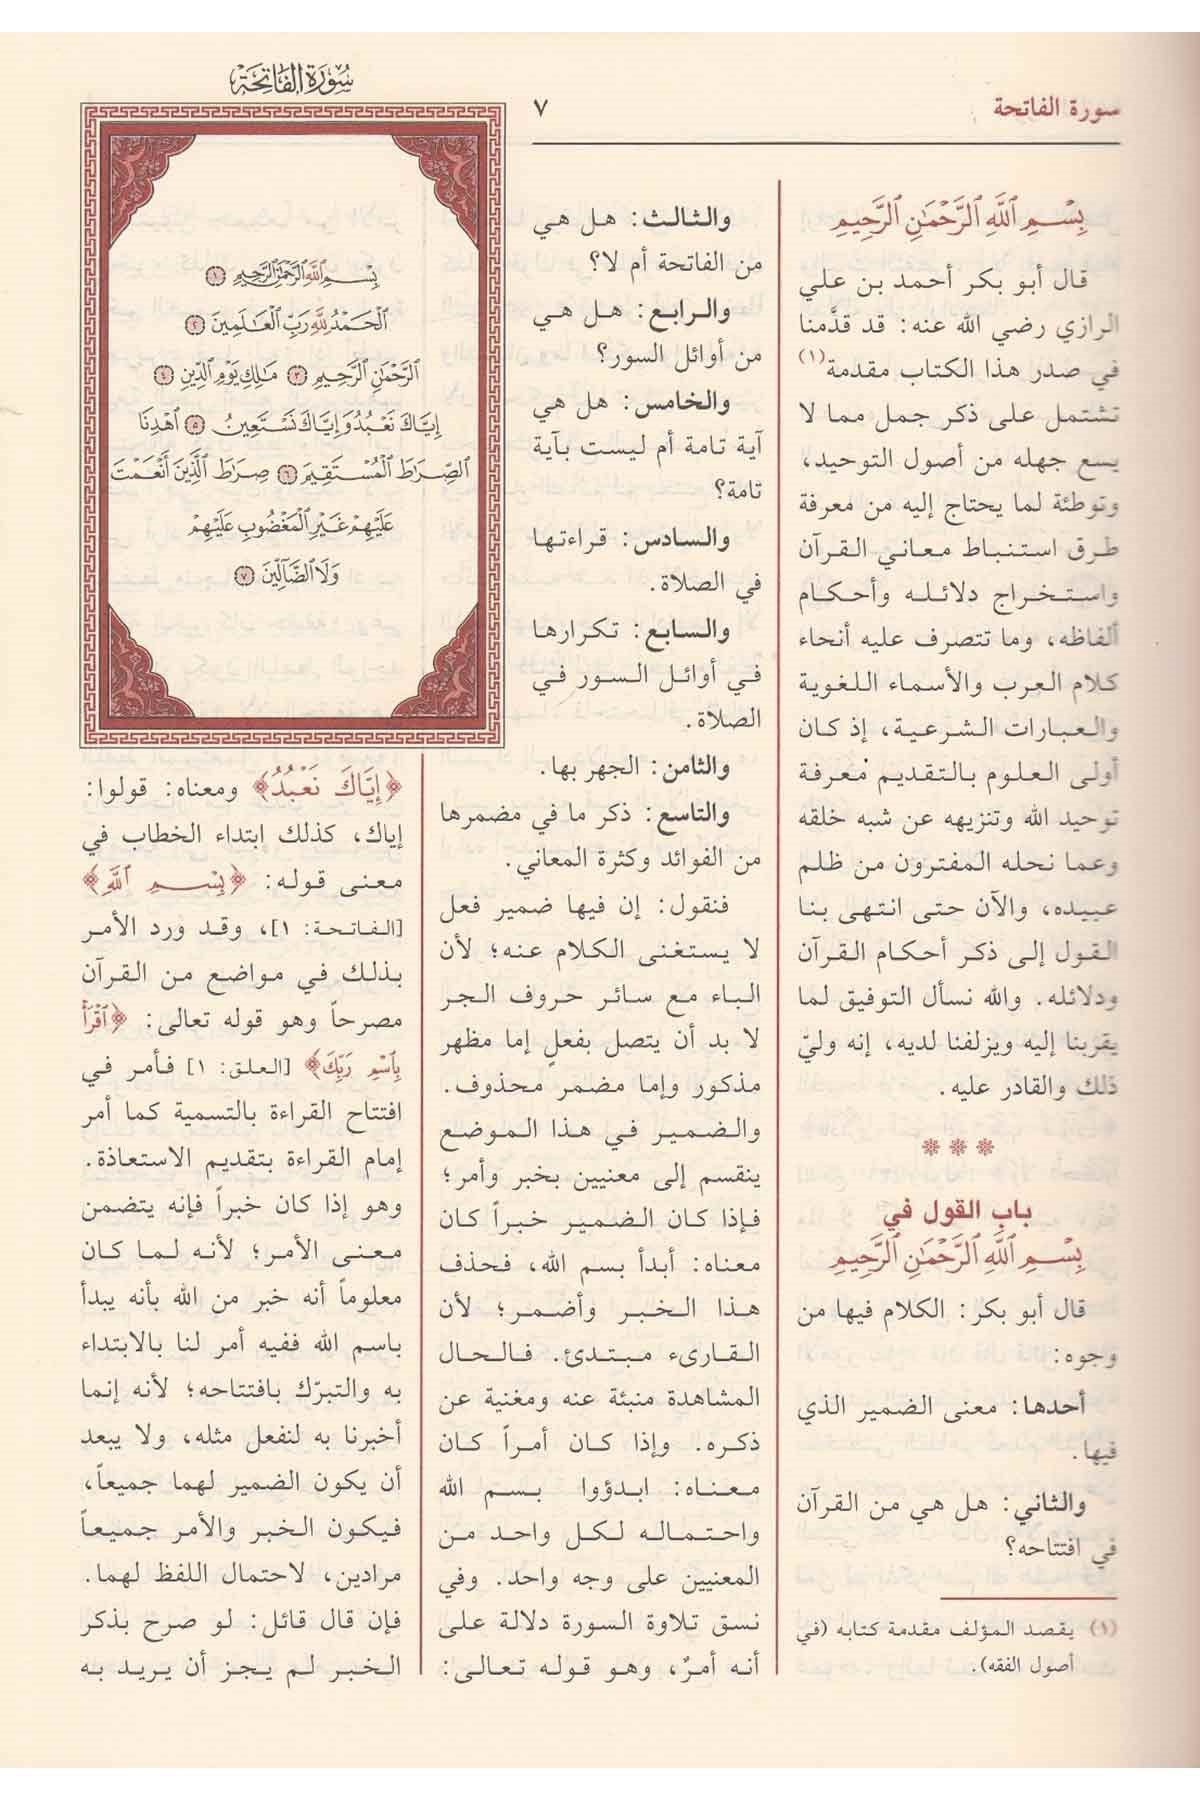 سورة الفاتحة
٧
بِسْمِ ٱللَّهِ ٱلرَّحْمَٰنِ ٱلرَّحِيمِ
قال أبو بكر أحمد بن علي
الرازي رضي الله عنه: قد قدَّمنا
في صدر هذا الكتاب مقدمة(١)
تشتمل على ذكر جمل مما لا
يسع جهله من أصول التوحيد،
وتوطئة لما يحتاج إليه من معرفة
طرق استنباط معاني القرآن
واستخراج دلائله وأحكام
ألفاظه، وما تتصرف عليه أنحاء
كلام العرب والأسماء اللغوية
والعبارات الشرعية، إذ كان
أولى العلوم بالتقديم معرفة
توحيد الله وتنزيهه عن شبه خلقه
وعما نحله المفترون من ظلم
عبيده، والآن حتى انتهى بنا
القول إلى ذكر أحكام القرآن
ودلائله. والله نسأل التوفيق لما
يقربنا إليه ويزلفنا لديه، إنه وليّ
ذلك والقادر عليه.
***
باب القول في
بِسْمِ ٱللَّهِ ٱلرَّحْمَٰنِ ٱلرَّحِيمِ
قال أبو بكر: الكلام فيها من
وجوه:
أحدها: معنى الضمير الذي
فيها.
والثاني: هل هي من القرآن
في افتتاحه؟
(١) يقصد المؤلف مقدمة كتابه (في
أصول الفقه).
والثالث: هل هي
من الفاتحة أم لا؟
والرابع: هل هي
من أوائل السور؟
والخامس: هل هي
آية تامة أم ليست بآية
تامة؟
والسادس: قراءتها
في الصلاة.
والسابع: تكرارها
في أوائل السور في
الصلاة.
والثامن: الجهر بها.
والتاسع: ذكر ما في مضمرها
من الفوائد وكثرة المعاني.
فنقول: إن فيها ضمير فعل
لا يستغنى الكلام عنه؛ لأن
الباء مع سائر حروف الجر
لا بد أن يتصل بفعلٍ إما مظهر
مذكور وإما مضمر محذوف.
والضمير في هذا الموضع
ينقسم إلى معنيين بخبر وأمر؛
فإذا كان الضمير خبراً كان
معناه: أبدأ بسم الله، فحذف
هذا الخبر وأضمر؛ لأن
القارىء مبتدئ. فالحال
المشاهدة منبئة عنه ومغنية عن
ذكره. وإذا كان أمراً كان
معناه: ابدؤوا بسم الله
واحتماله لكل واحد من
المعنيين على وجه واحد. وفي
نسق تلاوة السورة دلالة على
أنه أمرٌ، وهو قوله تعالى:
سُورَةُ الفَاتِحَةِ
بِسْمِ ٱللَّهِ ٱلرَّحْمَٰنِ ٱلرَّحِيمِ ١
ٱلْحَمْدُ لِلَّهِ رَبِّ ٱلْعَٰلَمِينَ ٢
ٱلرَّحْمَٰنِ ٱلرَّحِيمِ ٣ مَٰلِكِ يَوْمِ ٱلدِّينِ ٤
إِيَّاكَ نَعْبُدُ وَإِيَّاكَ نَسْتَعِينُ ٥ ٱهْدِنَا
ٱلصِّرَٰطَ ٱلْمُسْتَقِيمَ ٦ صِرَٰطَ ٱلَّذِينَ أَنْعَمْتَ
عَلَيْهِمْ غَيْرِ ٱلْمَغْضُوبِ عَلَيْهِمْ
وَلَا ٱلضَّآلِّينَ ٧
﴿إِيَّاكَ نَعْبُدُ﴾ ومعناه: قولوا:
إياك، كذلك ابتداء الخطاب في
معنى قوله: ﴿بِسْمِ ٱللَّهِ﴾
[الفاتحة: ١]، وقد ورد الأمر
بذلك في مواضع من القرآن
مصرحاً وهو قوله تعالى: ﴿ٱقْرَأْ
بِٱسْمِ رَبِّكَ﴾ [العلق: ١] فأمر في
افتتاح القراءة بالتسمية كما أمر
إمام القراءة بتقديم الاستعاذة.
وهو إذا كان خبراً فإنه يتضمن
معنى الأمر؛ لأنه لما كان
معلوماً أنه خبر من الله بأنه يبدأ
باسم الله ففيه أمر لنا بالابتداء
به والتبرّك بافتتاحه؛ لأنه إنما
أخبرنا به لنفعل مثله، ولا يبعد
أن يكون الضمير لهما جميعاً،
فيكون الخبر والأمر جميعاً
مرادين، لاحتمال اللفظ لهما.
فإن قال قائل: لو صرح بذكر
الخبر لم يجز أن يريد به